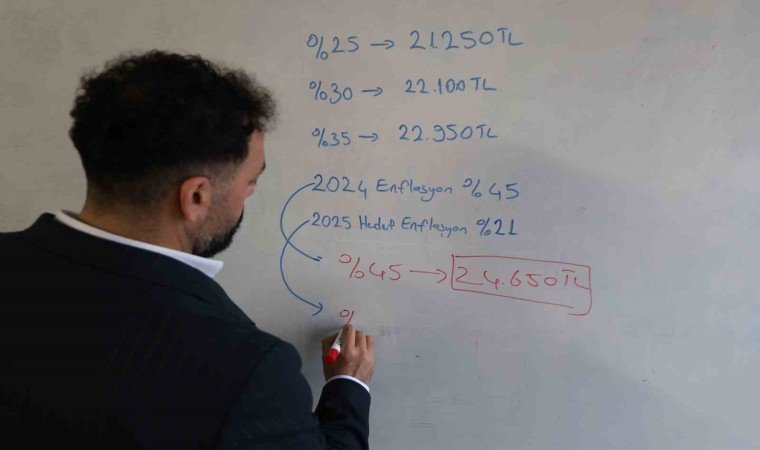 %25 → 21.250 TL
%30 → 22.100 TL
%35 → 22.950 TL
2024 Enflasyon %45
2025 Hedef Enflasyon %21
%45 → 24.650 TL
%